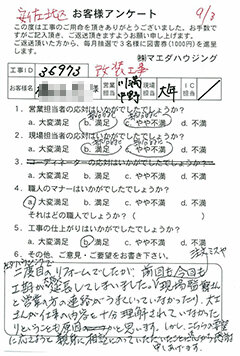 安佐北区 お客様アンケート 9/8
この度は工事のご用命を頂きありがとうございました。お手数で
すがご記入頂き、ご返送頂きますようお願い申し上げます。
ご返送頂いた方から、毎月抽選で3名様に図書券(1000円)を進呈
します。
㈱マエダハウジング
工事ID 36973 改装工事
お客様名 様 営業担当 川満 中野 工事担当 大年 IC担当
1. 営業担当者の応対はいかがでしたでしょうか?
a. 大変満足 b. 満足 c. やや不満 d. 不満
2. 現場担当者の応対はいかがでしたでしょうか?
a. 大変満足 b. 満足 c. やや不満 d. 不満
3. コーディネーターの応対はいかがでしたでしょうか?
a. 大変満足 b. 満足 c. やや不満 d. 不満
4. 職人のマナーはいかがでしたでしょうか?
a. 大変満足 b. 満足 c. やや不満 d. 不満
それはどの職人でしょうか? ( )
5. 工事の仕上がりはいかがでしたでしょうか?
a. 大変満足 b. 満足 c. やや不満 d. 不満
6. その他、ご意見・ご要望をお書き下さい。
注文ミスや
二度目のリフォームでしたが、前回も今回も
工期が延長してしまいました。現場監督さん
と営業の方の連絡がうまくいっていなかったり、大
工さんが仕事の内容を十分理解されていなかった
りということも原因かと思います。しかし、こちらの要望